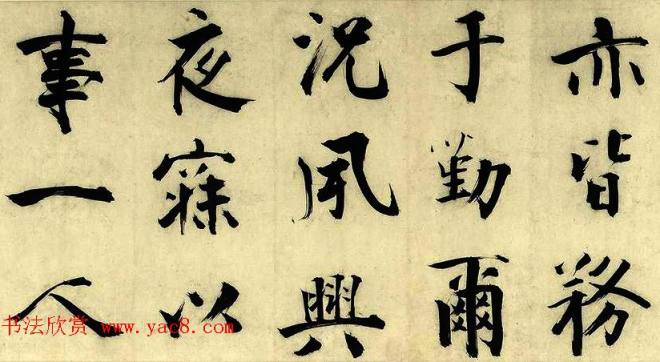 亦皆務
于勤爾
況夙興
夜寐以
事一人
书法欣赏 www.yac8.com